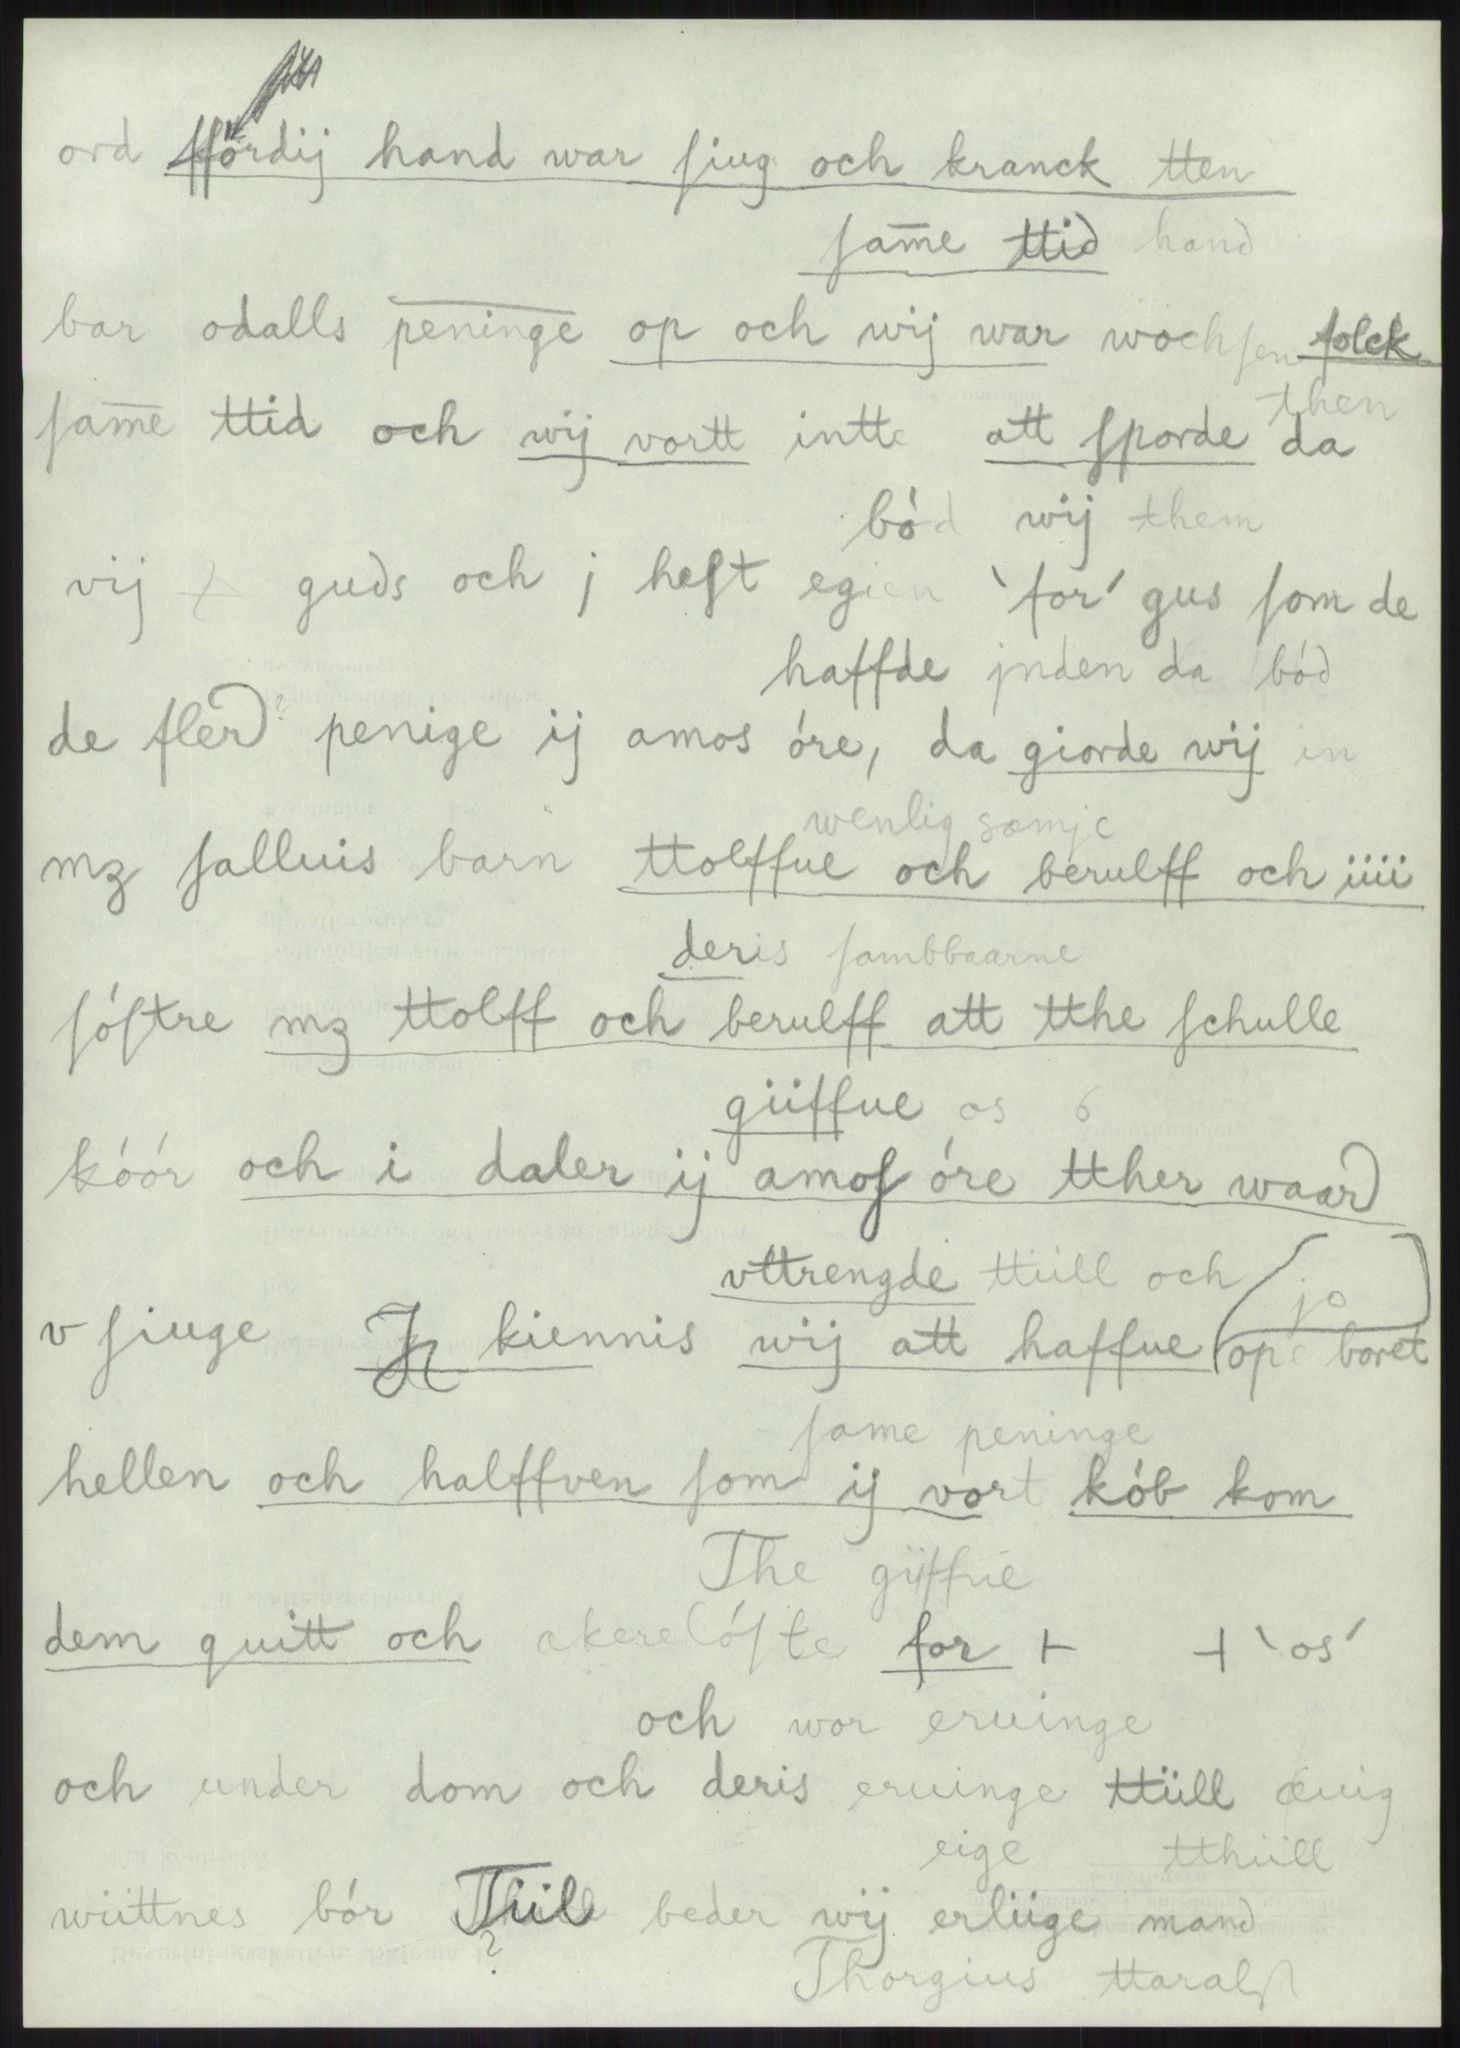 ord ffördij hand war siug och kranck tten
sam̅e ttid hand
bar odalls peninge op och wij war wochsen folck
sam̅e ttid och wij vortt intte att sporde da
then
bód wij them
vij guds och j heft egien ‵for′ gus som de
haffde jnden da bód
de flerd? penige ij amos óre, da giorde wij in
wenlig somje
mz salluis barn ttolffue och berulff och iiii
deris sambbaarne
sóstre mz ttolff och berulff att tthe schulle
giiffue os 6
kóór och i daler ij amos óre tther waard
vttrengde ttiill och
v siuge Jt kiennis wij att haffue ope boret
jo
same peninge
hellen och halffven som ij vort kób kom
The giiffue
dem quitt och akerelóste for + + ‵os′
och wor eruinge
och under dom och deris eruinge ttiill æuig
eige tthiill
wiittnes bór Tiil ? beder wij erliige mand
Thorgius ttarals